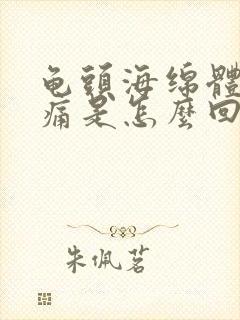 龟頭海绵體
痛是怎麼回
朱佩茗